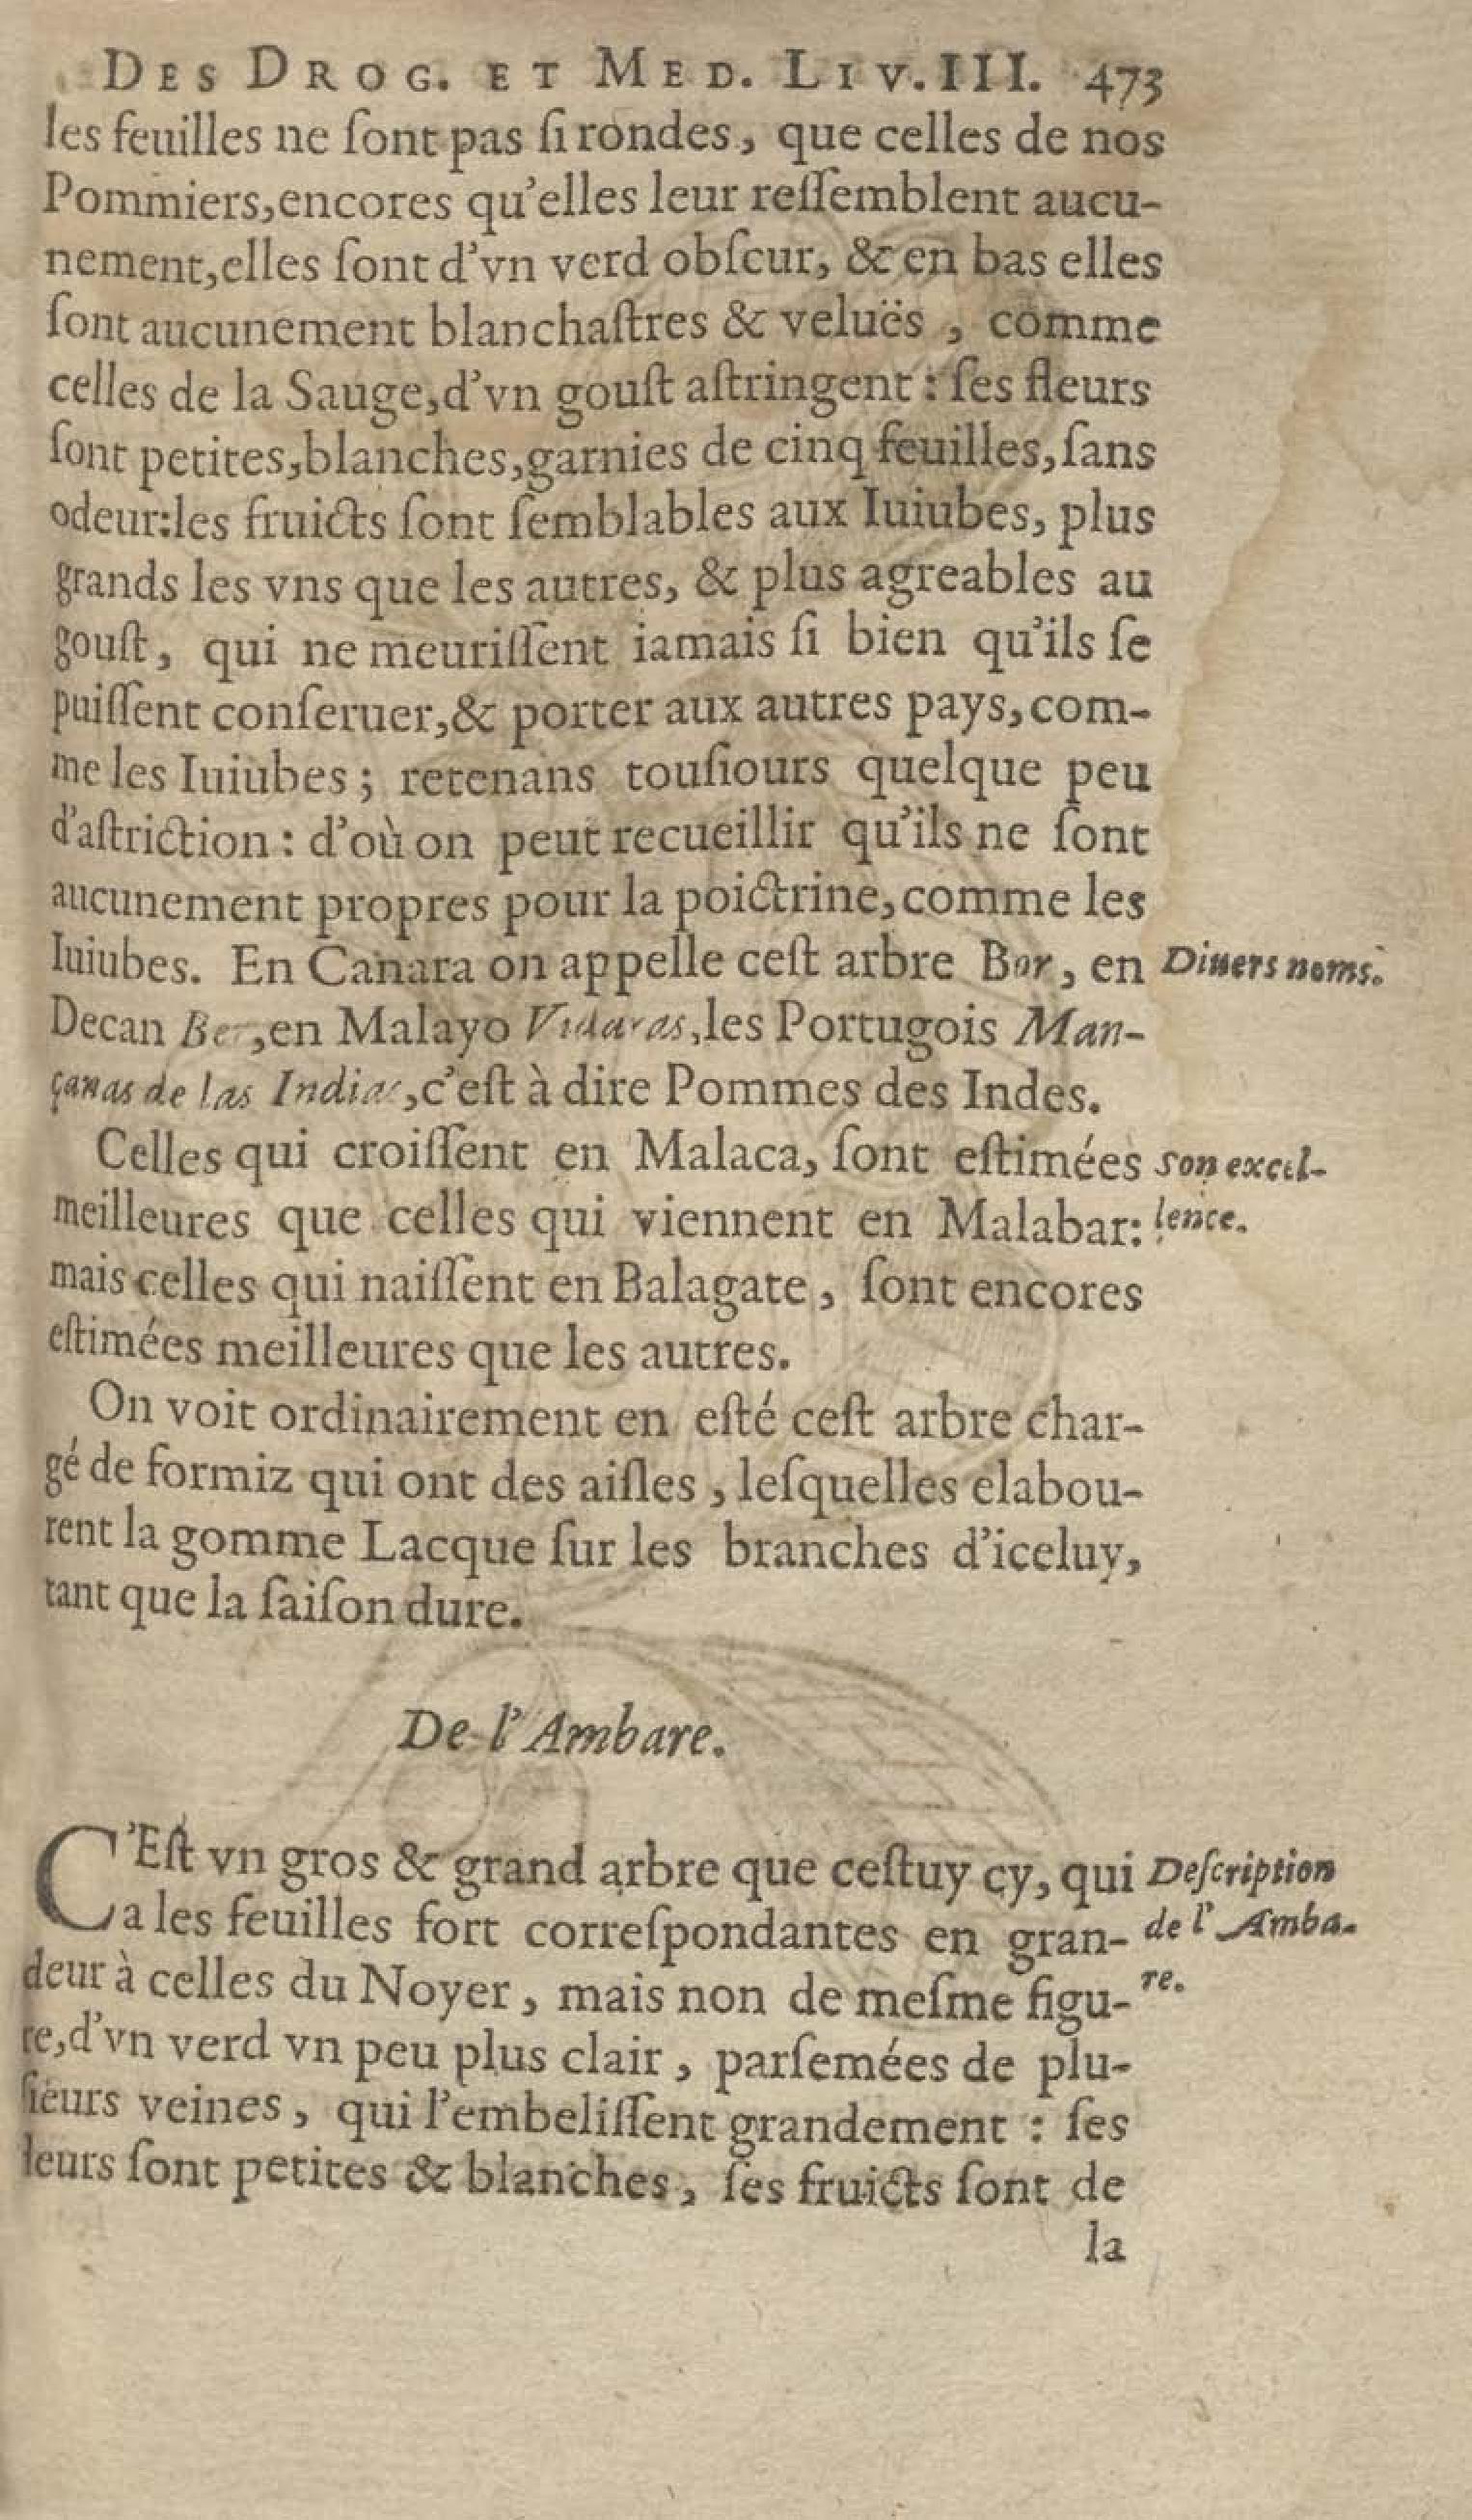 DES DROG. ET MED. LIV. III. 473
les feuilles ne ſont pas ſi rondes, que celles de nos
Pommiers, encores qu'elles leur reſſemblent aucu-
nement, elles ſont d'vn verd obſcur, & en bas elles
ſont aucunement blanchaſtres & veluës, comme
celles de la Sauge, d'vn gouſt aſtringent : ſes fleurs
ſont petites, blanches, garnies de cinq feuilles, ſans
odeur: les fruicts ſont ſemblables aux Iuiubes, plus
grands les vns que les autres, & plus agreables au
gouſt, qui ne meuriſſent iamais ſi bien qu'ils ſe
puiſſent conſeruer, & porter aux autres pays, com-
me les Iuiubes ; retenans touſiours quelque peu
d'aſtriction : d'où on peut recueillir qu'ils ne ſont
aucunement propres pour la poictrine, comme les
Iuiubes. En Canara on appelle ceſt arbre Bor, en
Diuers noms.
Decan Ber, en Malayo Vidaras, les Portugois Man-
çanas de las Indias, c'eſt à dire Pommes des Indes.
Celles qui croiſſent en Malaca, ſont eſtimées
Son excel-
meilleures que celles qui viennent en Malabar:
lence.
mais celles qui naiſſent en Balagate, ſont encores
eſtimées meilleures que les autres.
On voit ordinairement en eſté ceſt arbre char-
gé de formiz qui ont des aiſles, leſquelles elabou-
rent la gomme Lacque ſur les branches d'iceluy,
tant que la ſaiſon dure.
De l'Ambare.
C'Eſt vn gros & grand arbre que ceſtuy cy, qui
Deſcription
a les feuilles fort correſpondantes en gran-
de l'Amba-
deur à celles du Noyer, mais non de meſme figu-
re.
re, d'vn verd vn peu plus clair, parſemées de plu-
ſieurs veines, qui l'embeliſſent grandement : ſes
leurs ſont petites & blanches, ſes fruicts ſont de
la